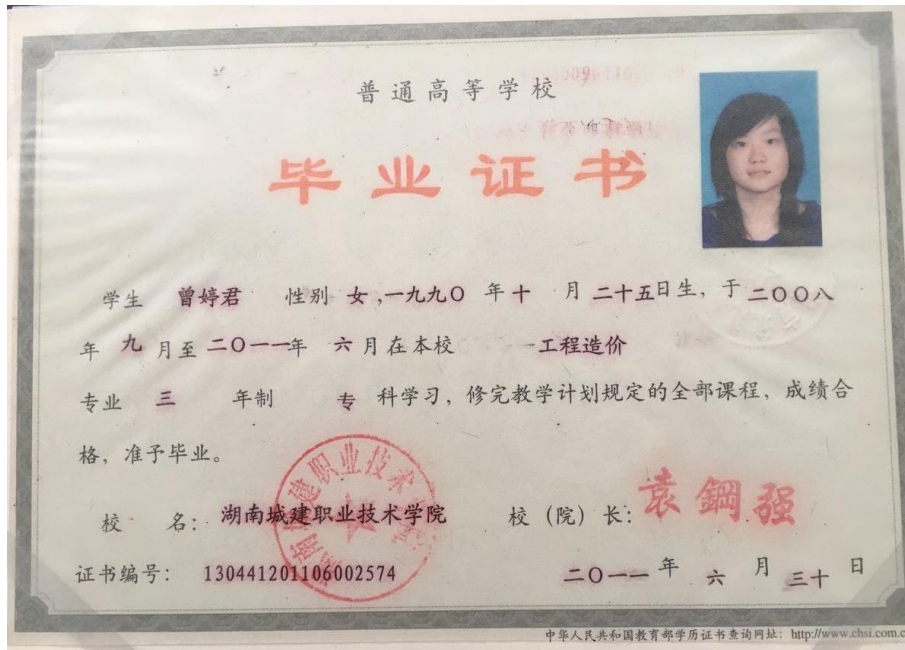 普通高等学校
毕业证书
学生 曾婷君 性别 女,一九九〇 年 十 月 二十五日生，于 二〇〇八
年 九 月至 二〇一一年 六 月在本校 工程造价
专业 三 年制 专 科学习，修完教学计划规定的全部课程，成绩合
格，准予毕业。
校 名： 湖南城建职业技术学院 校（院）长： 袁鋼强
证书编号： 130441201106002574 二〇一一 年 六 月 三十 日
中华人民共和国教育部学历证书查询网址： http://www.chsi.com.c